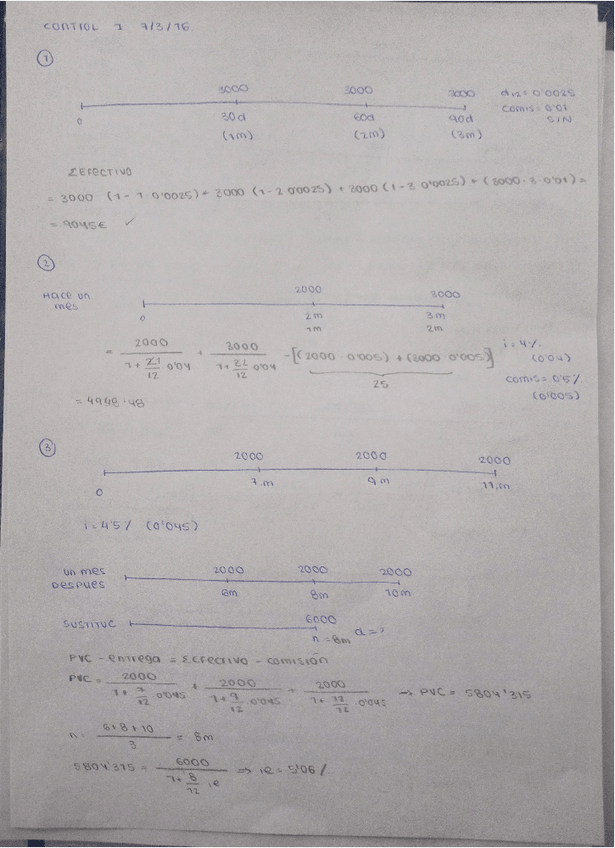 CONTROL 1 7/3/16
①
3000 3000 3000 d12 = 0'0025
0 30d 60d 90d comis = 0'01
(1m) (2m) (3m) S/N
Σ EFECTIVO
= 3000 (1 - 1 0'0025) + 3000 (1 - 2 0'0025) + 3000 (1 - 3 0'0025) + (3000 · 3 · 0'01) =
= 9045€ ✓
②
HACE UN MES
2000 3000
0 2m 3m
1m 2m
= 2000 / (1 + 21/12 0'04) + 3000 / (1 + 32/12 0'04) - [(2000 0'005) + (3000 0'005)]
25
i = 4% (0'04)
comis = 0'5% (0'005)
= 4948'48
③
2000 2000 2000
0 7m 9m 11m
i = 4'5% (0'045)
UN MES DESPUES
2000 2000 2000
6m 8m 10m
SUSTITUC 6000
n = 8m d = ?
PVC - entrega = Σ EFECTIVO - comisión
PVC = 2000 / (1 + 7/12 · 0'045) + 2000 / (1 + 9/12 · 0'045) + 2000 / (1 + 11/12 · 0'045) → PVC = 5804'315
n = (6 + 8 + 10) / 3 = 8m
5804'315 = 6000 / (1 + 8/12 ie) ⇒ ie = 5'06%